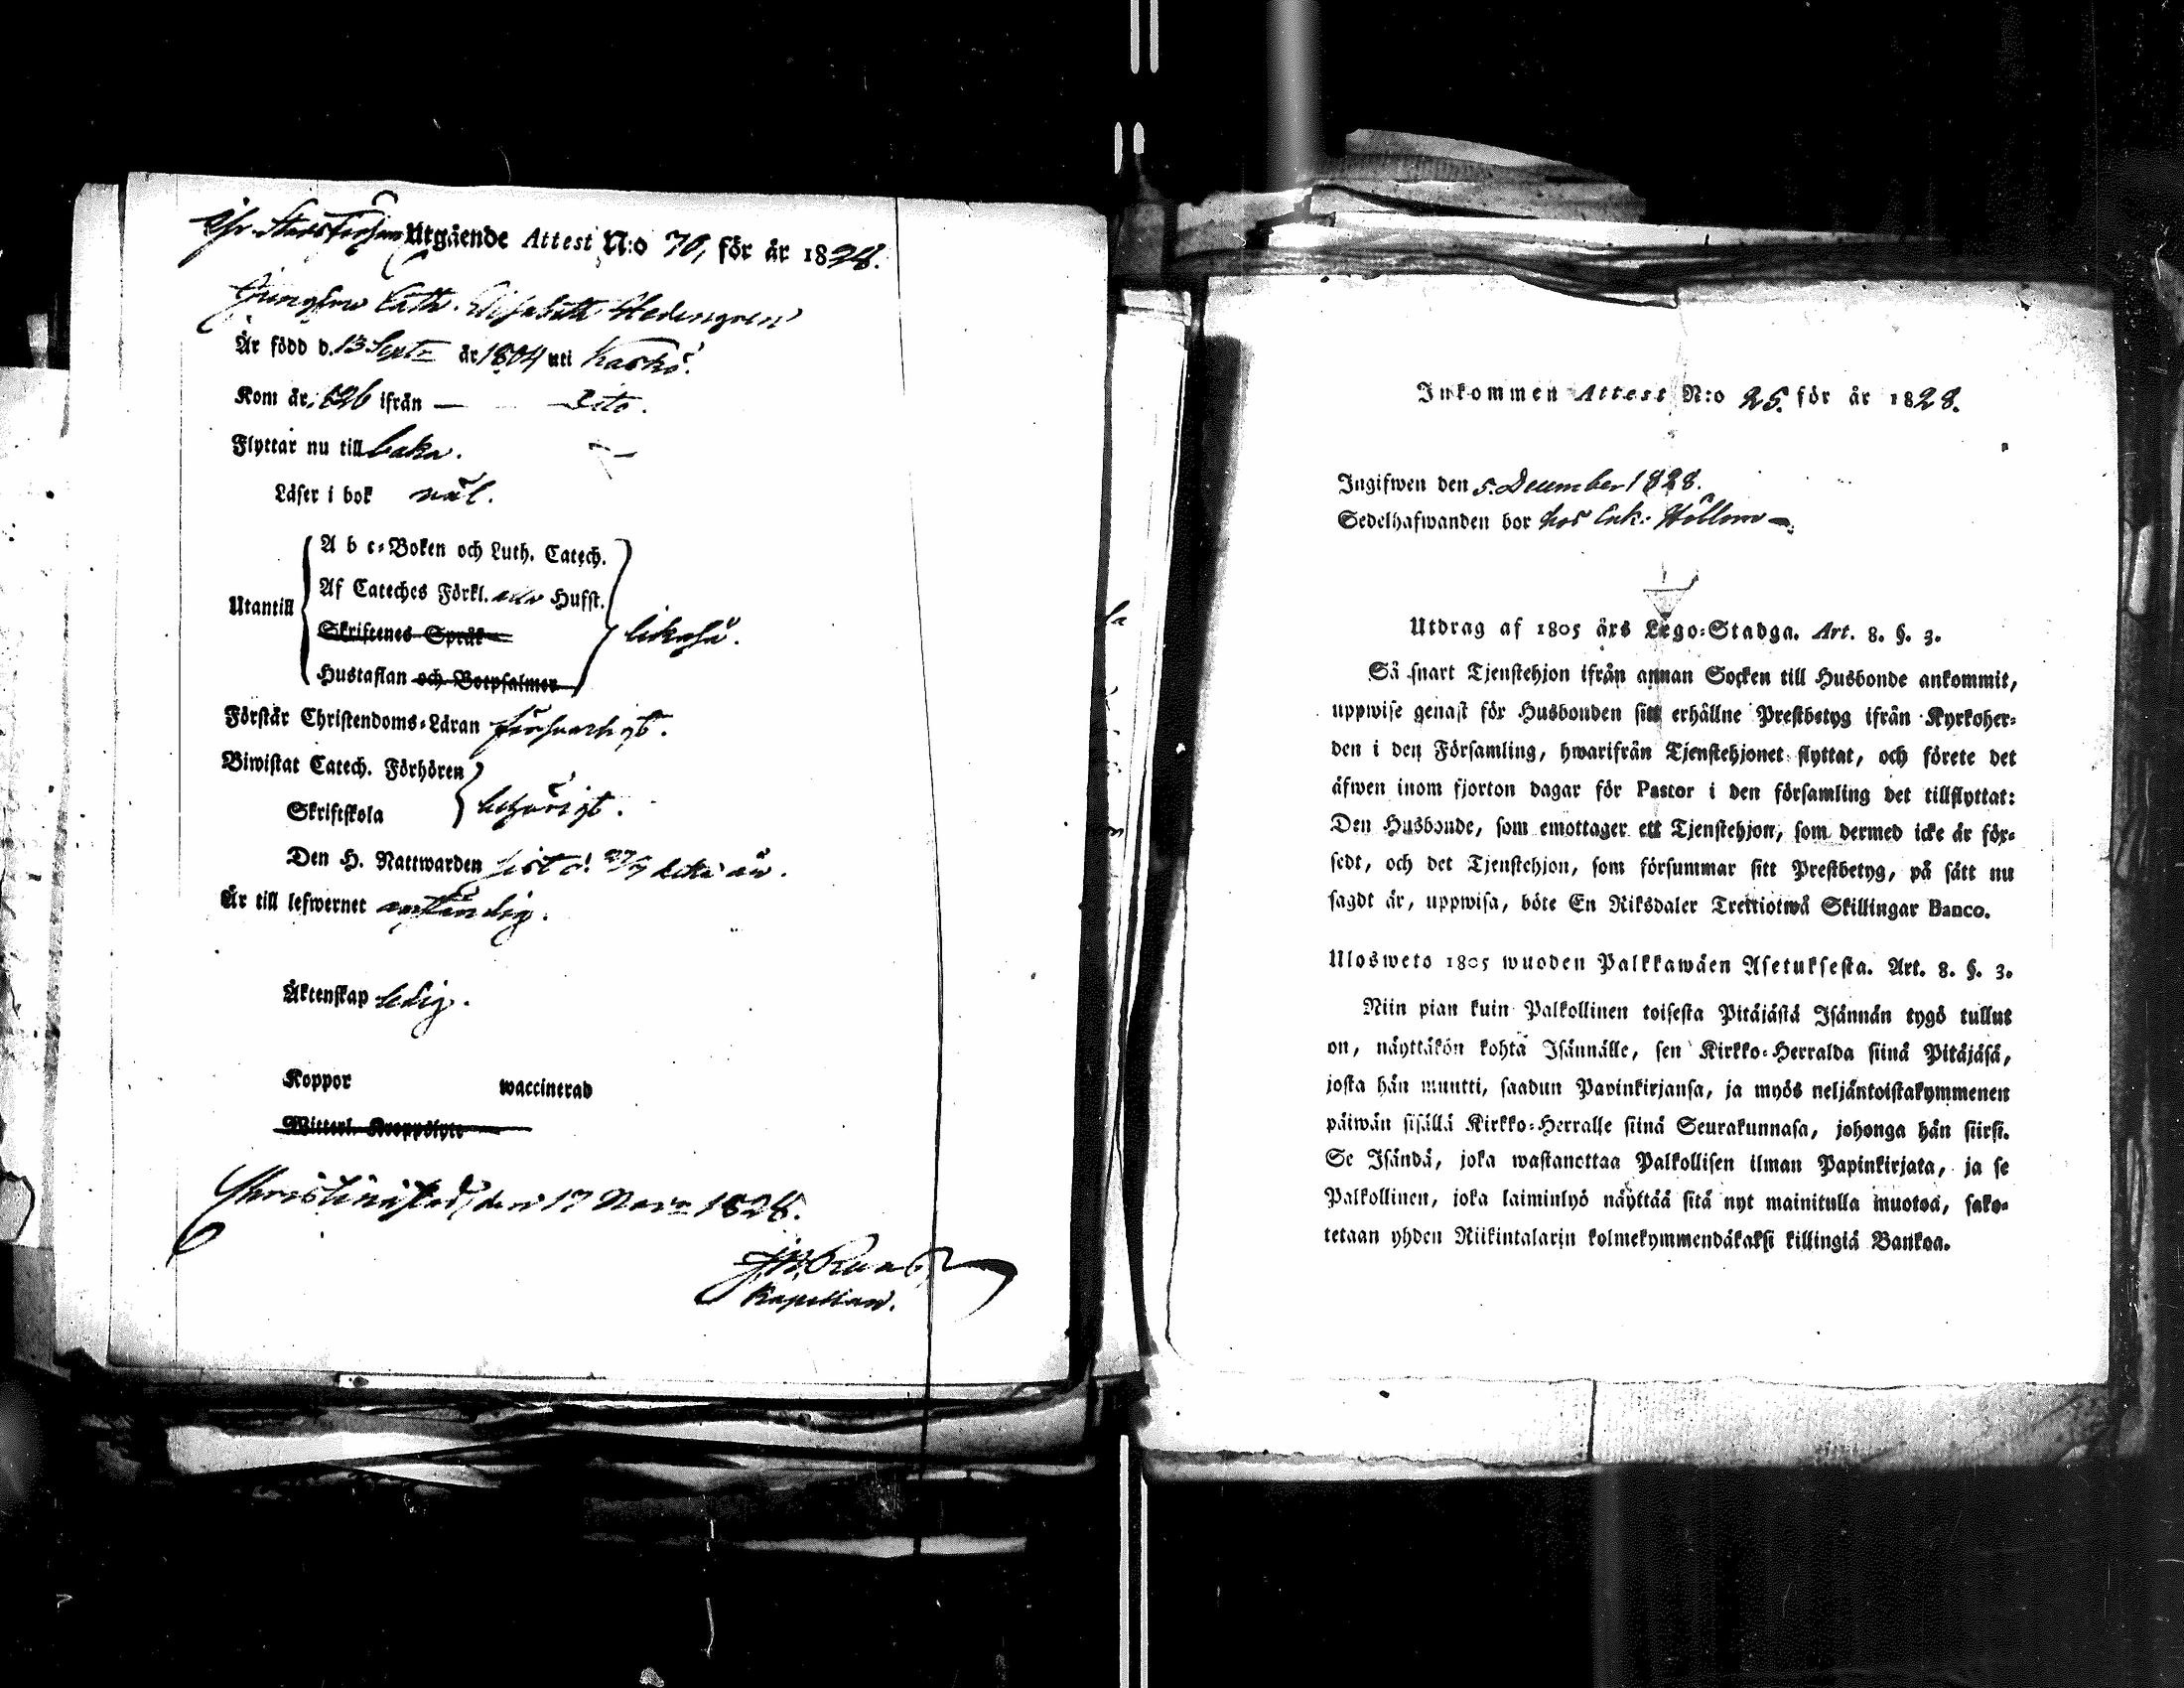 Chr. Stads Försam Utgående Attest N:o 70, för år 1828.
Jungfrun Cath. Elisabeth Hedengren
Är född d. 13 Sept: år 1804 uti Kaskö.
Kom år 1826 ifrån — Dito.
Flyttar nu till baka.
Läser i bok wäl.
Utantill
A b c-Boken och Luth. Catech.
Af Cateches Förkl. Husst.
Skriftenes Språk
Hustaflan och Botpsalmer
likaså.
Förstår Christendoms-Läran försvarligt.
Biwistat Catech. Förhören
Skriftskola
behörigt.
Den H. Nattwarden sist d.
Är till lefwernet anständig.
Äktenskap ledig.
Koppor waccinerad
Witterl. Kroppslyte
Christinestad, den 17 Nov: 1828.
Kapellan.
Inkommen Attest N:o 25. för år 1828.
Ingifwen den 5. December 1828.
Sedelhafwanden bor hos Enk:
Utdrag af 1805 års Lego-Stadga. Art. 8. §. 3.
Så snart Tjenstehjon ifrån annan Socken till Husbonde ankommit,
uppwise genast för Husbonden sitt erhållne Prestbetyg ifrån Kyrkoher-
den i den Församling, hwarifrån Tjenstehjonet flyttat, och förete det
äfwen inom fjorton dagar för Pastor i den församling det tillflyttat:
Den Husbonde, som emottager ett Tjenstehjon, som dermed icke är för-
sedt, och det Tjenstehjon, som försummar sitt Prestbetyg, på sätt nu
sagdt är, uppwisa, böte En Riksdaler Trettiotwå Skillingar Banco.
Ulosweto 1805 wuoden Palkkawäen Asetuksesta. Art. 8. §. 3.
Niin pian kuin Palkollinen toisesta Pitäjästä Isännän tygö tullut
on, näyttäkön kohta Isännälle, sen Kirkko-Herralda siinä Pitäjäsä,
josta hän muutti, saadun Papinkirjansa, ja myös neljäntoistakymmenen
päiwän sisällä Kirkko-Herralle siinä Seurakunnasa, johonga hän siirsi.
Se Isändä, joka wastanottaa Palkollisen ilman Papinkirjata, ja se
Palkollinen, joka laiminlyö näyttää sitä nyt mainitulla muotoa, sako-
tetaan yhden Riikintalarin kolmekymmendäkaksi killingiä Bankoa.